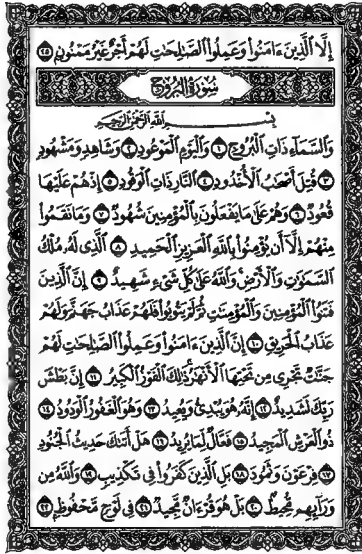 إِلَّا الَّذِينَ ءَامَنُوا۟ وَعَمِلُوا۟ الصَّٰلِحَٰتِ لَهُمْ أَجْرٌ غَيْرُ مَمْنُونٍۭ ٢٥
سُورَةُ البُرُوجِ
بِسْمِ اللَّهِ الرَّحْمَٰنِ الرَّحِيمِ
وَالسَّمَآءِ ذَاتِ الْبُرُوجِ ١ وَالْيَوْمِ الْمَوْعُودِ ٢ وَشَاهِدٍ وَمَشْهُودٍ
٣ قُتِلَ أَصْحَٰبُ الْأُخْدُودِ ٤ النَّارِ ذَاتِ الْوَقُودِ ٥ إِذْ هُمْ عَلَيْهَا
قُعُودٌ ٦ وَهُمْ عَلَىٰ مَا يَفْعَلُونَ بِالْمُؤْمِنِينَ شُهُودٌ ٧ وَمَا نَقَمُوا۟
مِنْهُمْ إِلَّآ أَن يُؤْمِنُوا۟ بِاللَّهِ الْعَزِيزِ الْحَمِيدِ ٨ الَّذِى لَهُۥ مُلْكُ
السَّمَٰوَٰتِ وَالْأَرْضِ وَاللَّهُ عَلَىٰ كُلِّ شَىْءٍ شَهِيدٌ ٩ إِنَّ الَّذِينَ
فَتَنُوا۟ الْمُؤْمِنِينَ وَالْمُؤْمِنَٰتِ ثُمَّ لَمْ يَتُوبُوا۟ فَلَهُمْ عَذَابُ جَهَنَّمَ وَلَهُمْ
عَذَابُ الْحَرِيقِ ١٠ إِنَّ الَّذِينَ ءَامَنُوا۟ وَعَمِلُوا۟ الصَّٰلِحَٰتِ لَهُمْ
جَنَّٰتٌ تَجْرِى مِن تَحْتِهَا الْأَنْهَٰرُ ذَٰلِكَ الْفَوْزُ الْكَبِيرُ ١١ إِنَّ بَطْشَ
رَبِّكَ لَشَدِيدٌ ١٢ إِنَّهُۥ هُوَ يُبْدِئُ وَيُعِيدُ ١٣ وَهُوَ الْغَفُورُ الْوَدُودُ ١٤
ذُو الْعَرْشِ الْمَجِيدُ ١٥ فَعَّالٌ لِّمَا يُرِيدُ ١٦ هَلْ أَتَىٰكَ حَدِيثُ الْجُنُودِ
١٧ فِرْعَوْنَ وَثَمُودَ ١٨ بَلِ الَّذِينَ كَفَرُوا۟ فِى تَكْذِيبٍ ١٩ وَاللَّهُ مِن
وَرَآئِهِم مُّحِيطٌۢ ٢٠ بَلْ هُوَ قُرْءَانٌ مَّجِيدٌ ٢١ فِى لَوْحٍ مَّحْفُوظٍۭ ٢٢